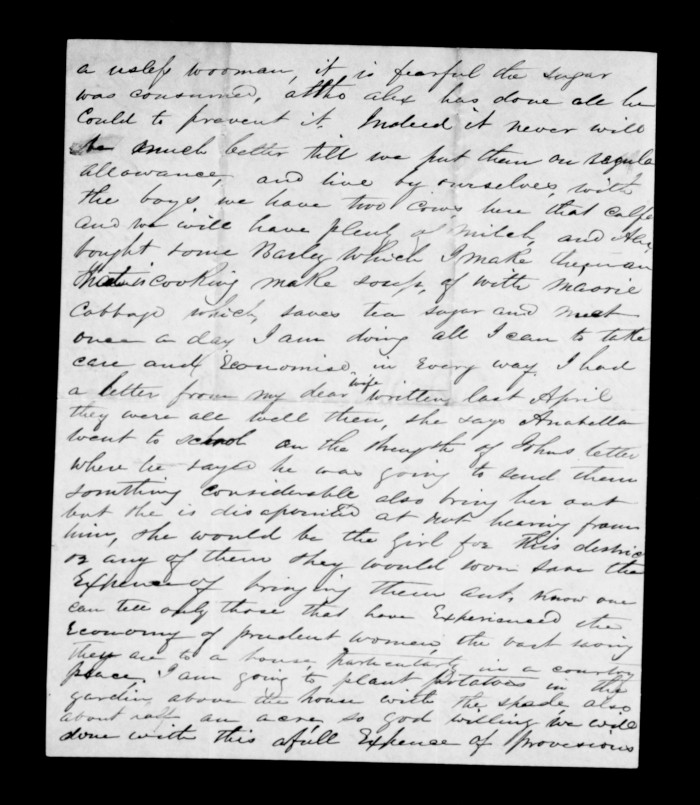 a usless wooman, it is fearful the sugar
was consumed, altho alex has done all he
Could to prevent it. Indeed it never will
be much better till we put them on regula
allowance, and live by ourselves, with
the boys, we have two Cows here that calfe
and we will have plenty of milch, and Alex
bought some Barley which I make
cooking make soup, of with maorie
Cabbage which saves tea sugar and meet
once a day I am doing all I can to take
care and Economise in Every way I had
a letter from my dear wife written last April
they were all well then, she says Anabella
went to school on the strength of Johns letter
where he sayed he was going to send them
something considerable also bring her out
but she is disapointed at not hearing from
him, she would be the Girl for this distric
or any of them they would soon save the
Expence of bringing them out, know one
can tell only those that have Experienced the
Economy of prudent women, the vast saving
they are to a house, particularly in a country
place. I am going to plant potatoes in the
garden above the house with the spade, also
about half an acre, so god willing we will
done with this afull Expence of provisions